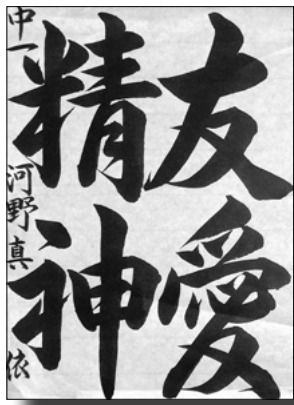 友愛
精神
中一 河野真依